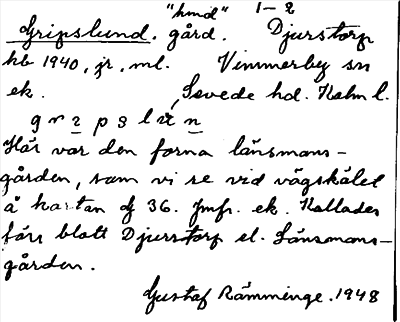 "hmd" 1-2
Gripslund. gård. Djurstorp
hb 1940, jr, ml. Vimmerby sn
ek. , Sevede hd. Kalm l.
Här var den forna länsmans-
gården, som vi se vid vägskälet
å kartan df 36. Jmfr. ek. Kallades
förr blott Djurstorp el. Länsmans-
gården.
Gustaf Rämminge. 1948